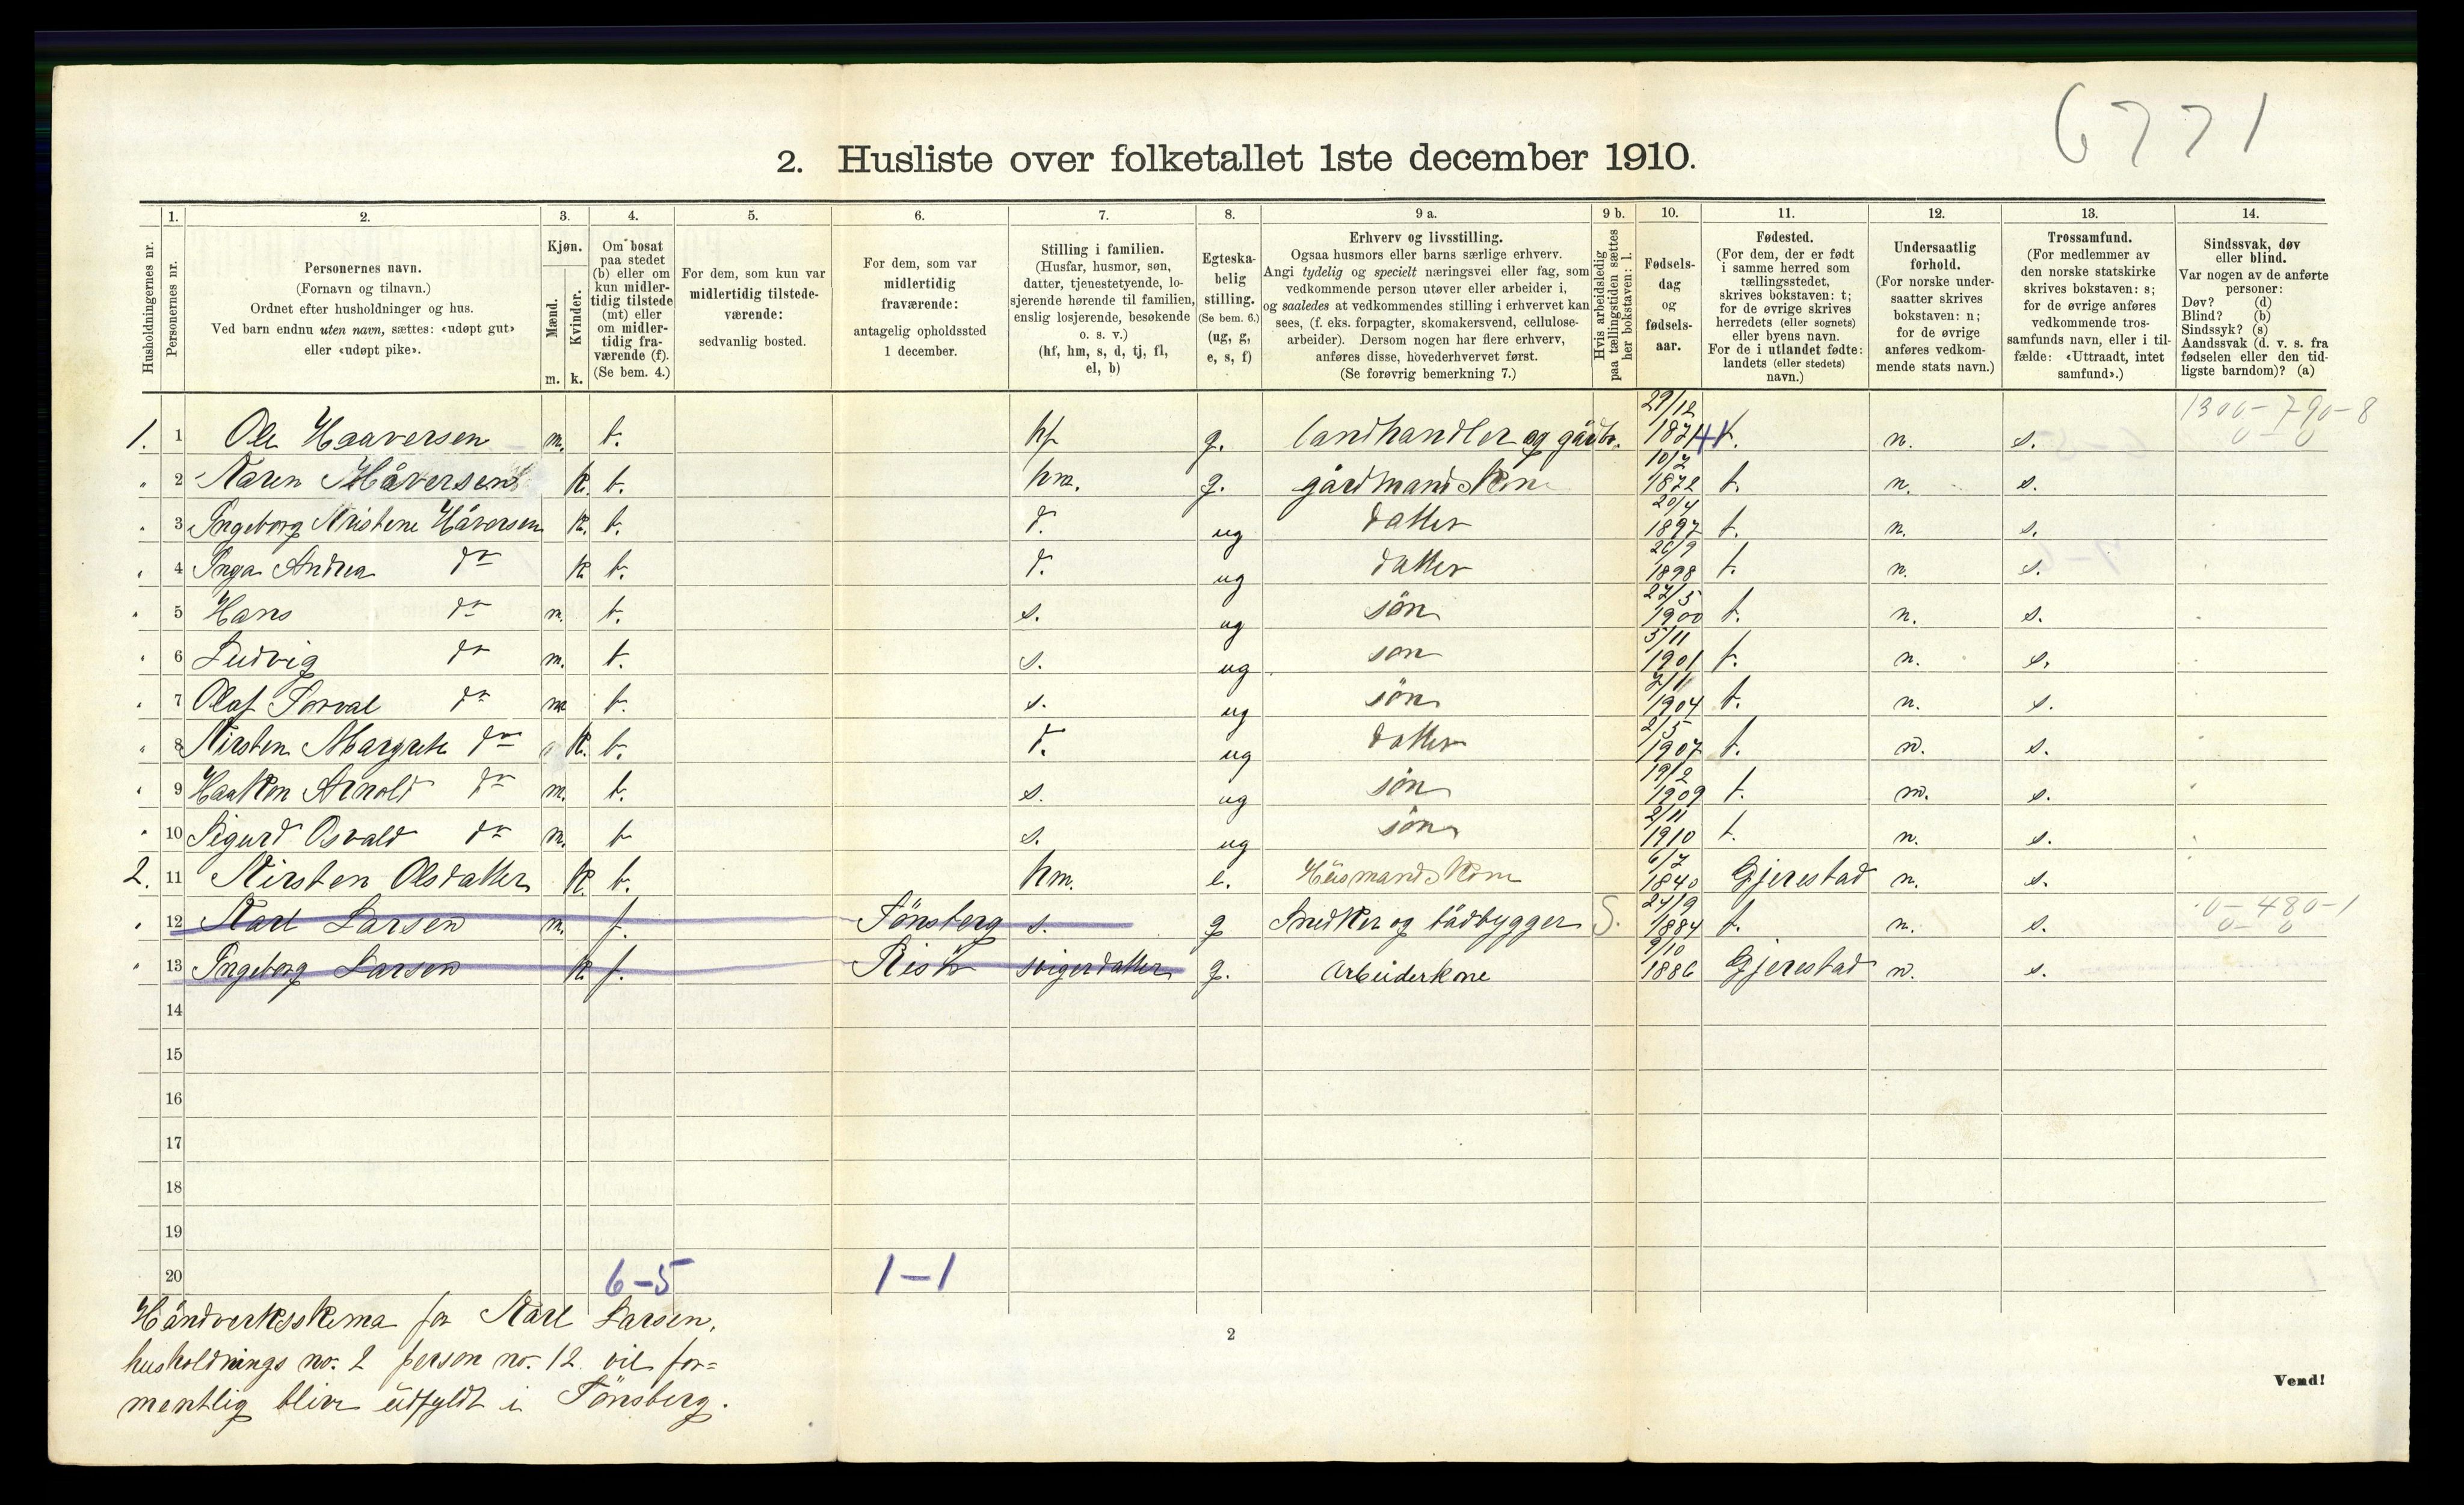 6771
2. Husliste over folketallet 1ste december 1910.
Husholdningernes nr.
1. Personernes nr.
2. Personernes navn.
(Fornavn og tilnavn.)
Ordnet efter husholdninger og hus.
Ved barn endnu uten navn, sættes: «udøpt gut»
eller «udøpt pike».
3. Kjøn.
Mænd. m.
Kvinder. k.
4. Om bosat
paa stedet
(b) eller om
kun midler-
tidig tilstede
(mt) eller
om midler-
tidig fra-
værende (f).
(Se bem. 4.)
5. For dem, som kun var
midlertidig tilstede-
værende:
sedvanlig bosted.
6. For dem, som var
midlertidig
fraværende:
antagelig opholdssted
1 december.
7. Stilling i familien.
(Husfar, husmor, søn,
datter, tjenestetyende, lo-
sjerende hørende til familien,
enslig losjerende, besøkende
o. s. v.)
(hf, hm, s, d, tj, fl,
el, b)
8. Egteska-
belig
stilling.
(Se bem. 6.)
(ug, g,
e, s, f)
9 a. Erhverv og livsstilling.
Ogsaa husmors eller barns særlige erhverv.
Angi tydelig og specielt næringsvei eller fag, som
vedkommende person utøver eller arbeider i,
og saaledes at vedkommendes stilling i erhvervet kan
sees, (f. eks. forpagter, skomakersvend, cellulose-
arbeider). Dersom nogen har flere erhverv,
anføres disse, hovederhvervet først.
(Se forøvrig bemerkning 7.)
9 b. Hvis arbeidsledig
paa tællingstiden sættes
her bokstaven: l.
10. Fødsels-
dag
og
fødsels-
aar.
11. Fødested.
(For dem, der er født
i samme herred som
tællingsstedet,
skrives bokstaven: t;
for de øvrige skrives
herredets (eller sognets)
eller byens navn.
For de i utlandet fødte:
landets (eller stedets)
navn.)
12. Undersaatlig
forhold.
(For norske under-
saatter skrives
bokstaven: n;
for de øvrige
anføres vedkom-
mende stats navn.)
13. Trossamfund.
(For medlemmer av
den norske statskirke
skrives bokstaven: s;
for de øvrige anføres
vedkommende tros-
samfunds navn, eller i til-
fælde: «Uttraadt, intet
samfund».)
14. Sindssvak, døv
eller blind.
Var nogen av de anførte
personer:
Døv? (d)
Blind? (b)
Sindssyk? (s)
Aandssvak (d. v. s. fra
fødselen eller den tid-
ligste barndom)? (a)
1. 1 Ole Haaversen m. b. hf g. landhandler og gårdbr. 29/12 1871 t. n. s. 1300-790-8 0-0
" 2 Karen Håversen k. b. hm. g. gårdmandskone 10/7 1872 t. n. s.
" 3 Ingeborg Kristene Håversen k. b. d. ug datter 20/4 1897 t. n. s.
" 4 Inga Andrea do k b. d. ug datter 26/9 1898 t. n. s.
" 5 Hans do m. b. s. ug søn 27/5 1900 t. n. s.
" 6 Ludvig do m. b. s. ug søn 5/11 1901 t. n. s.
" 7 Olaf Torval do m b. s. ug søn 7/11 1904 t. n. s.
" 8 Kirsten Margrete do k. b. d. ug datter 2/5 1907 t. n. s.
" 9 Haakon Arnold do m. b. s. ug søn 19/2 1909 t. n. s.
" 10 Sigurd Osvald do m. b s. ug søn 2/11 1910 t. n. s.
2. 11 Kirsten Olsdatter k. b. hm. e. Husmandskone 6/7 1840 Gjerestad n. s.
" 12 Karl Larsen m. f. Tönsberg s. g Snedker og bådbygger S. 24/9 1884 t. n. s. 0-480-1 0-0
" 13 Ingeborg Larsen k f. Risör svigerdatter g. Arbeiderkone 9/10 1886 Gjerestad n. s.
14
15
16
17
18
19
20 6-5 1-1
Håndverksskema for Karl Larsen,
husholdnings no. 2 person no. 12 vil for=
mentlig blive udfyldt i Tönsberg.
2
Vend!